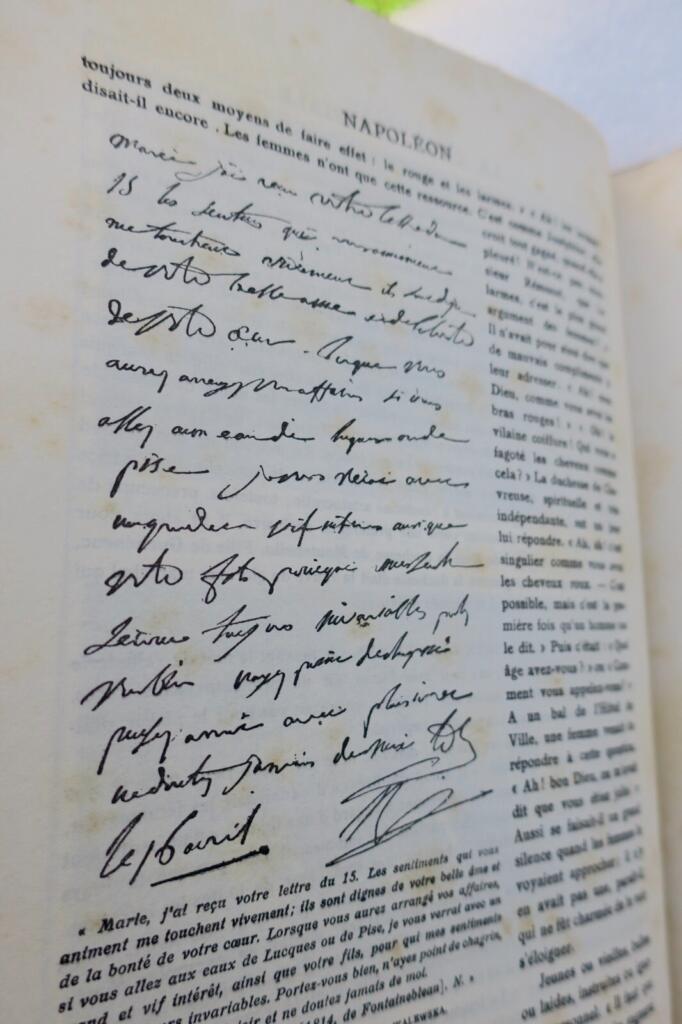 NAPOLÉON
toujours deux moyens de faire effet : le rouge et les larmes. » « Ah!
disait-il encore. Les femmes n'ont que cette ressource. C'est comme
Marie j'ai reçu votre lettre du
15 les sentimens qui vous animent
me touchent vivement ils sont dignes
de votre belle ame et de la bonté
de votre cœur. lorsque vous
aurez arrangé vos affaires si vous
allez aux eaux de lucques ou de
pise je vous verrai avec
un grand et vif intérêt ainsi que
votre fils pour qui mes sent
seront toujours invariables portez
vous bien n'ayez point de chagrin
pensez à moi avec plaisir et
ne doutez jamais de moi
le 16 avril
« Marie, j'ai reçu votre lettre du 15. Les sentiments qui vous
animent me touchent vivement; ils sont dignes de votre belle âme et
de la bonté de votre cœur. Lorsque vous aurez arrangé vos affaires,
si vous allez aux eaux de Lucques ou de Pise, je vous verrai avec un
grand et vif intérêt, ainsi que votre fils, pour qui mes sentiments
invariables. Portez-vous bien, n'ayez point de chagrin,
et ne doutez jamais de moi.
1814, de Fontainebleau]. N. »
WALEWSKA.
croit tout gagné, quand elle a
pleuré! N'est-ce pas,
sieur Rémusat, que les
larmes, c'est le plus grand
argument des femmes? »
Il n'avait pour
de mauvais compliments à
leur adresser. « Ah!
Dieu, comme vous avez les
bras rouges! » « Oh! la
vilaine coiffure! Qui vous a
fagoté les cheveux comme
cela? » La duchesse de Che-
vreuse, spirituelle et très
indépendante, est
lui répondre. « Ah, ah! c'est
singulier comme vous avez
les cheveux roux. — C'est
possible, mais c'est la pre-
mière fois qu'un homme me
le dit. » Puis c'était : « Quel
âge avez-vous? » ou « Com-
ment vous appelez-vous? »
A un bal de l'Hôtel de
Ville, une femme venait de
répondre à cette question.
« Ah! bon Dieu, on m'avait
dit que vous étiez jolie. »
Aussi se faisait-il un grand
silence quand les femmes le
voyaient approcher; il n'y
en avait pas une, paraît-il,
qui ne fût charmée de le voir
s'éloigner.
Jeunes ou vieilles, belles
ou laides, instruites ou